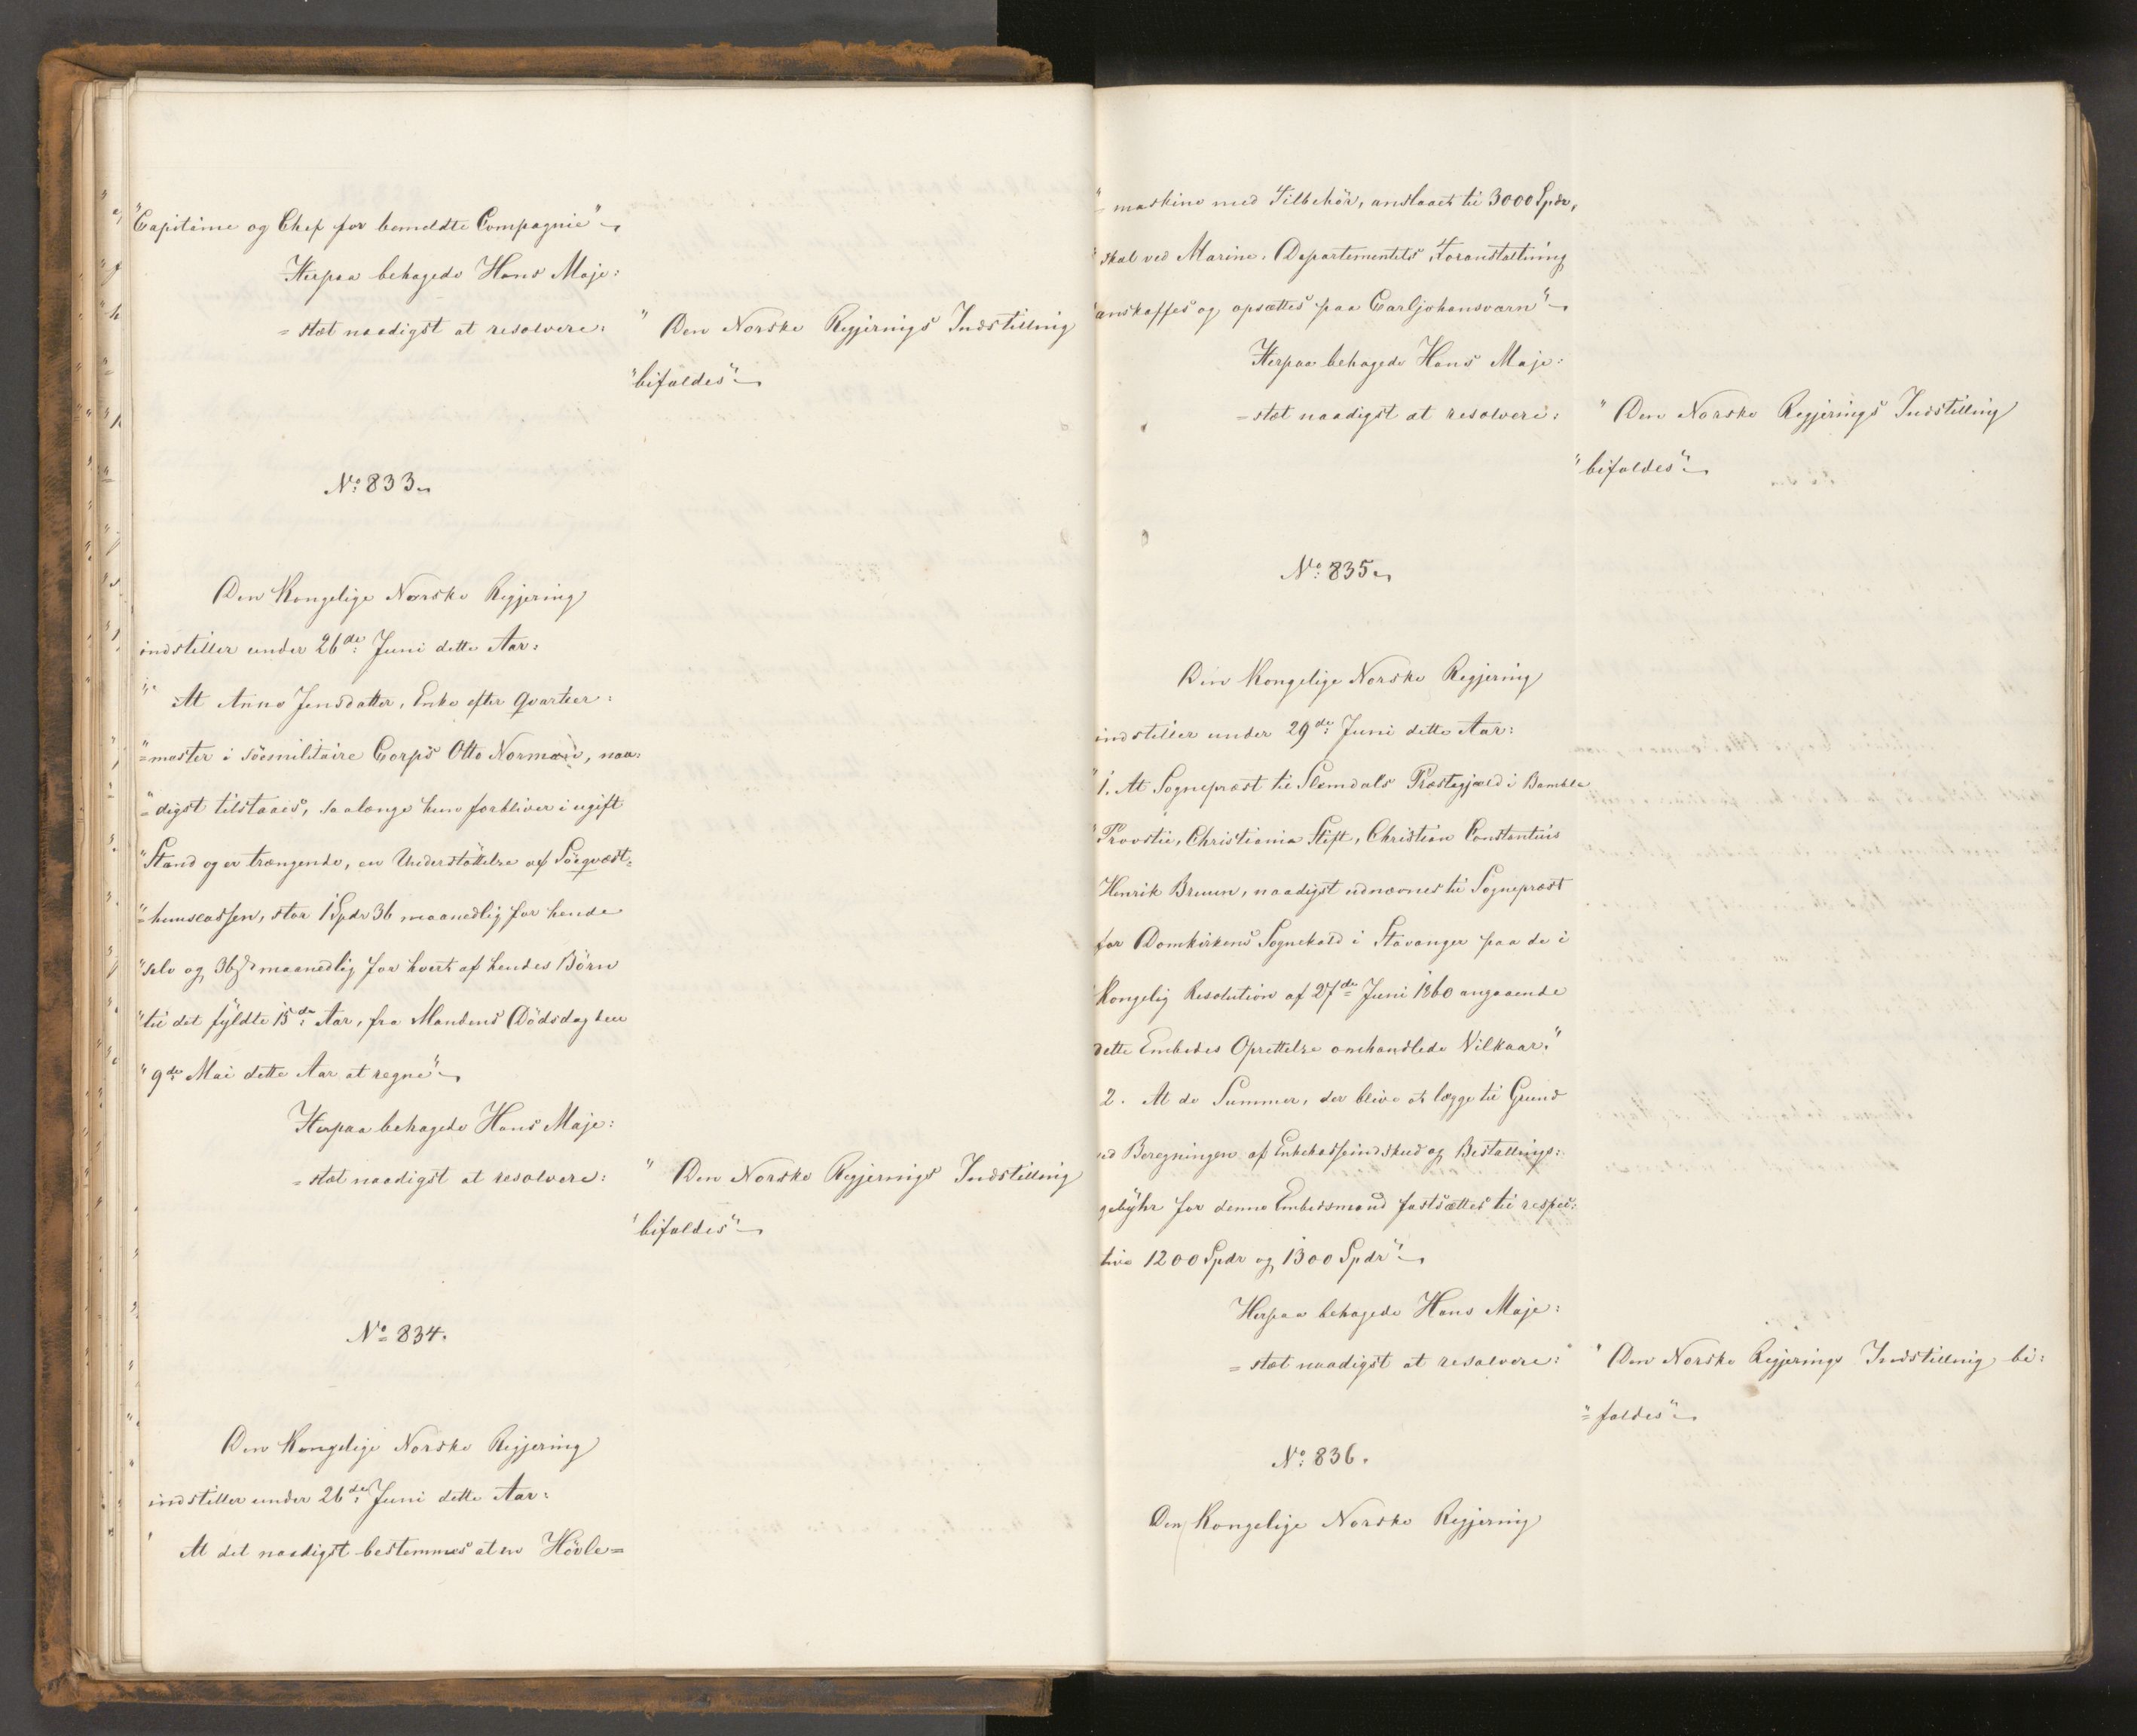 "Capitaine og Chef for bemeldte Compagnie"
Herpaa behagede Hans Maje:
=stæt naadigst at resolvere:
" Den Norske Regjerings Indstilling
"bifaldes"
No: 833
Den Kongelige Norske Regjering
indstiller under 26de: Juni dette Aar:
" At Anne Jensdatter, Enke efter Qvarteer:
"=mester i sömilitaire Corps Otto Normann, naa:
"=digst tilstaaes, saalænge hun forbliver i ugift
"Stand og er trængende, en Understöttelse af Söeqvæst=
"=huuscassen, stor 1 Spdr 36 maanedlig for hende
"selv og 36 maanedlig for hvert af hendes Börn
"til det fyldte 15de: Aar, fra Mandens Dödsdag den
"9de: Mai dette Aar at regne"
Herpaa behagede Hans Maje:
=stæt naadigst at resolvere:
" Den Norske Regjerings Indstilling
"bifaldes"
No 834.
Den Kongelige Norske Regjering
indstiller under 26de: Juni dette Aar:
" At det naadigst bestemmes at en Hövle=
"=maskine med Tilbehör, anslaaet til 3000 Spdr,
"skal ved Marine-Departementets Foranstaltning
"anskaffes og opsættes paa Carljohansværn"
Herpaa behagede Hans Maje:
=stæt naadigst at resolvere:
" Den Norske Regjerings Indstilling
"bifaldes"
No: 835
Den Kongelige Norske Regjering
indstiller under 29de: Juni dette Aar:
"1. At Sognepræst til Slemdals Præstegjæld i Bamble
"Provstie, Christiania Stift, Christian Constantius
Henrik Bruun, naadigst udnævnes til Sognepræst
for Domkirkens Sognekald i Stavanger paa de i
Kongelig Resolution af 27de Juni 1860 angaaende
dette Embedes Oprettelse omhandlede Vilkaar."
2. At de Summer, der blive at lægge til Grund
ved Beregningen af Enkekasseindskud og Bestallings:
gebyhr for denne Embedsmand fastsættes til respec:
tive 1200 Spdr og 1300 Spdr"
Herpaa behagede Hans Maje:
=stæt naadigst at resolvere:
" Den Norske Regjerings Indstilling bi:
"=faldes"
No: 836.
Den Kongelige Norske Regjering